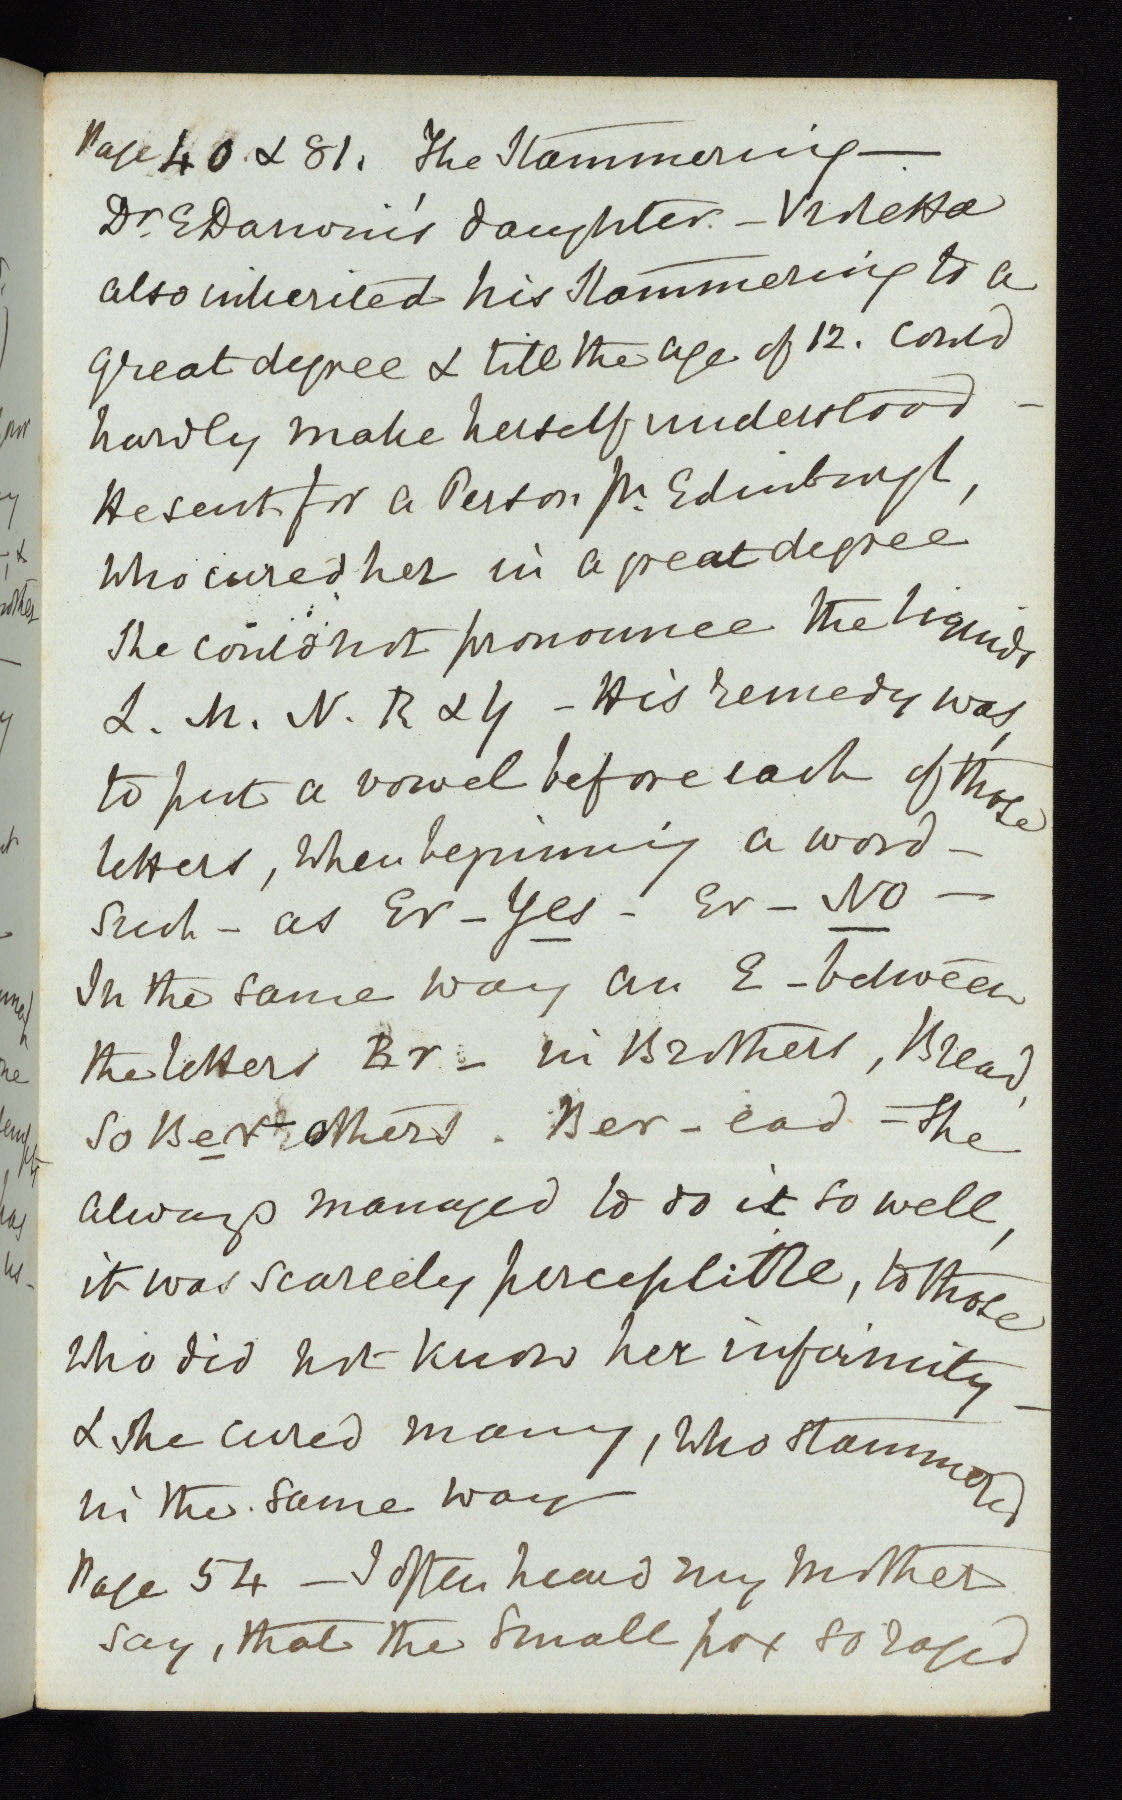 Page 40 & 81. The Stammering —
Dr. E Darwin's daughter. — Violetta
also inherited his Stammering to a
great degree & till the age of 12. could
hardly make herself understood —
He sent for a Person fm. Edinburgh,
who cured her in a great degree
She could not pronounce the liquids
L. M. N. R & Y — His remedy was,
to put a vowel before each of those
letters, when beginning a word —
Such — as Er — Yes — Er — No —
In the same way an E — between
the letters Br — in Brothers, Bread,
So Ber-others. Ber-ead — She
always managed to do it so well,
it was scarcely perceptible, to those
who did not know her infirmity —
& she cured many, who stammered
in the same way
Page 54 — I often heard my Mother
say, that the Small pox so raged